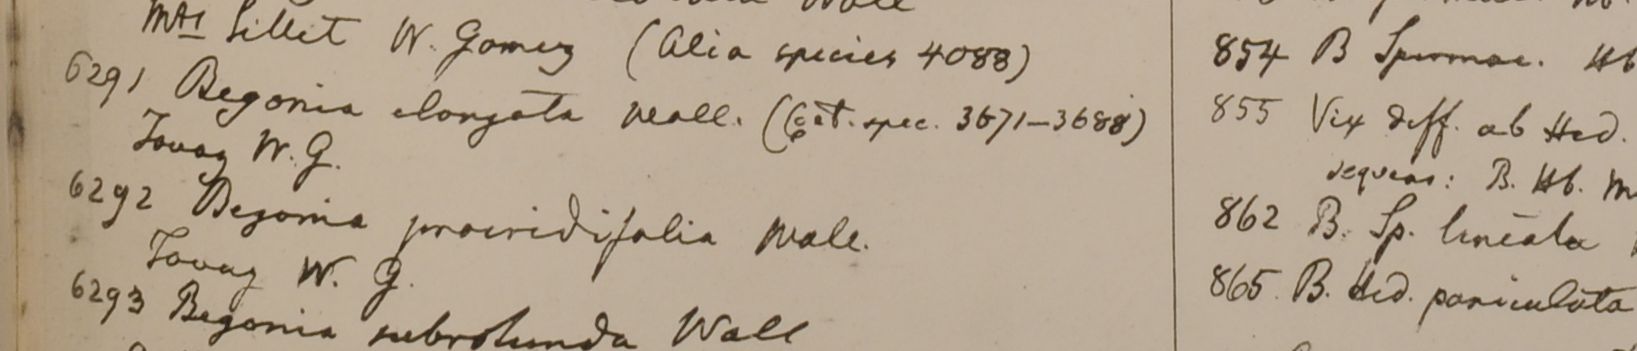 Wall
Mts Sillet W. Gomez (Alia species 4088)
6291 Begonia elongata Wall. (Cet. spec. 3671-3688)
Tavoy W. G.
6292 Begonia procridifolia Wall.
Tavoy W. G.
6293 Begonia subrotunda Wall
854 B Spermac. Hb
855 Vix diff. ab Hed.
sequens: B. Hb. M
862 B. Sp. lineata
865 B. Hed. paniculata